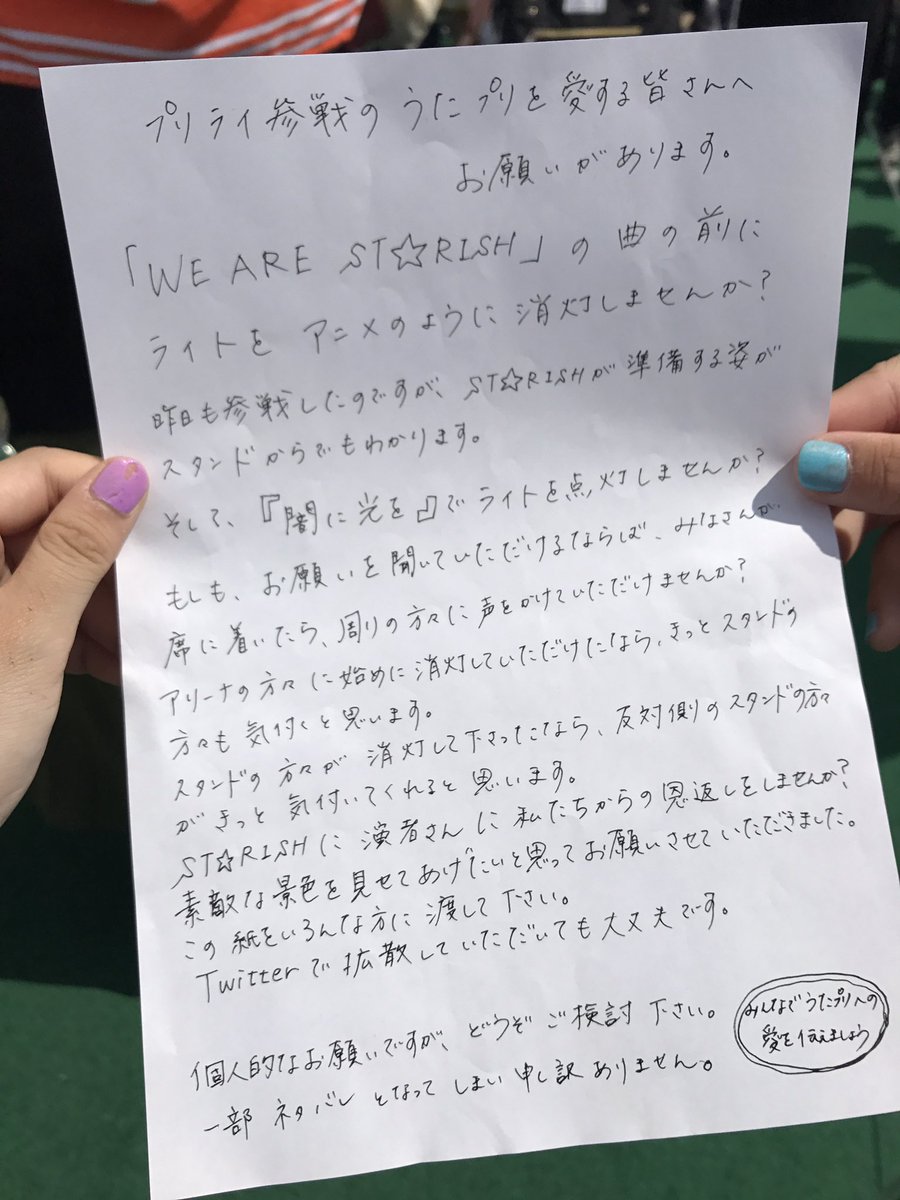 プリライ参戦のうたプリを愛する皆さんへ
お願いがあります。
「WE ARE ST☆RISH」の曲の前に
ライトを アニメのように消灯しませんか?
昨日も参戦したのですが、ST☆RISHが準備する姿が
スタンドからでもわかります。
そして、『闇に光を』でライトを点灯しませんか?
もしも、お願いを聞いていただけるならば、みなさんが、
席に着いたら、周りの方々に声をかけていただけませんか?
アリーナの方々に始めに消灯していただけたなら、きっとスタンドの
方々も気付くと思います。
スタンドの方々が消灯して下さったなら、反対側のスタンドの方々
がきっと気付いてくれると思います。
ST☆RISHに演者さんに私たちからの恩返しをしませんか?
素敵な景色を見せてあげたいと思ってお願いさせていただきました。
この紙をいろんな方に渡して下さい。
Twitterで拡散していただいても大丈夫です。
個人的なお願いですが、どうぞご検討下さい。
一部ネタバレとなってしまい申し訳ありません。
みんなでうたプリへの
愛を伝えましょう